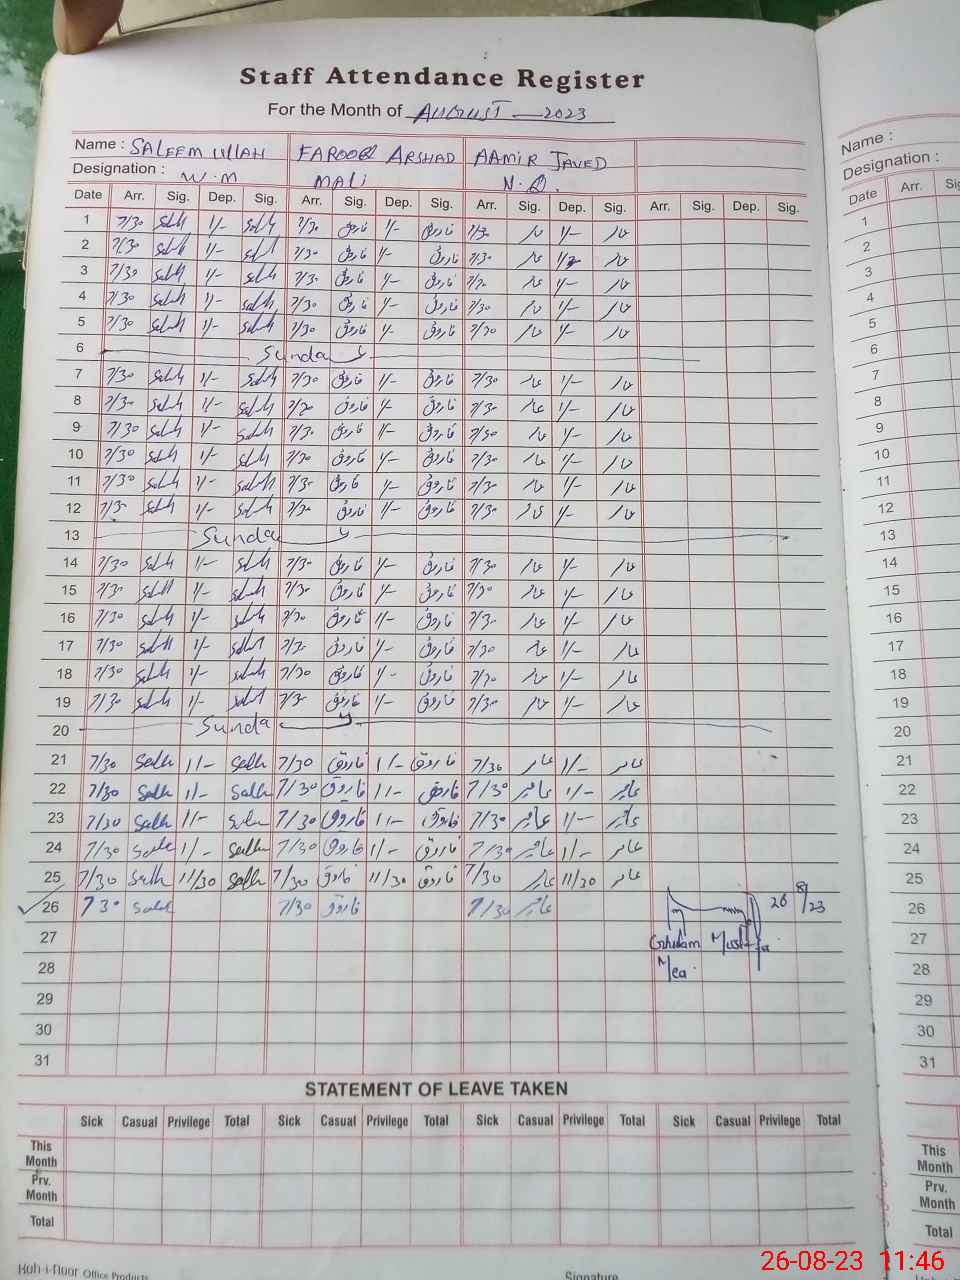 Staff Attendance Register
For the Month of AUGUST — 2023
Name : SALEEM ULLAH FAROOQ ARSHAD AAMIR JAVED
Designation : W.M MALI N.Q.
Date Arr. Sig. Dep. Sig. Arr. Sig. Dep. Sig. Arr. Sig. Dep. Sig. Arr. Sig. Dep. Sig.
1 7/30 1/- 7/30 فاروق 1/- فاروق 7/30 1/-
2 7/30 1/- 7/30 فاروق 1/- فاروق 7/30
3 7/30 1/- 7/30 فاروق 1/- فاروق 7/30 1/-
4 7/30 1/- 7/30 فاروق 1/- فاروق 7/30 1/-
5 7/30 1/- 7/30 فاروق 1/- فاروق 7/30 1/-
6 Sunday
7 7/30 1/- 7/30 فاروق 1/- فاروق 7/30 1/-
8 7/30 1/- 7/30 فاروق 1/- فاروق 7/30 1/-
9 7/30 1/- 7/30 فاروق 1/- فاروق 7/30 1/-
10 7/30 1/- 7/30 فاروق 1/- فاروق 7/30 1/-
11 7/30 1/- 7/30 فاروق 1/- فاروق 7/30 1/-
12 7/30 1/- 7/30 فاروق 1/- فاروق 7/30 1/-
13 Sunday
14 7/30 1/- 7/30 فاروق 1/- فاروق 7/30 1/-
15 7/30 1/- 7/30 فاروق 1/- فاروق 7/30 1/-
16 7/30 1/- 7/30 فاروق 1/- فاروق 7/30 1/-
17 7/30 1/- 7/30 فاروق 1/- فاروق 7/30 1/-
18 7/30 1/- 7/30 فاروق 1/- فاروق 7/30 1/-
19 7/30 1/- 7/30 فاروق 1/- فاروق 7/30 1/-
20 Sunday
21 7/30 1/- 7/30 فاروق 1/- فاروق 7/30 عامر 1/- عامر
22 7/30 1/- 7/30 فاروق 1/- فاروق 7/30 عامر 1/- عامر
23 7/30 1/- 7/30 فاروق 1/- فاروق 7/30 عامر 1/- عامر
24 7/30 1/- 7/30 فاروق 1/- فاروق 7/30 عامر 1/- عامر
25 7/30 11/30 7/30 فاروق 11/30 فاروق 7/30 عامر 11/30 عامر
26 7 30 7/30 فاروق 7/30 عامر 26 8/23
27 Ghulam Mustafa
28 Mea
29
30
31
STATEMENT OF LEAVE TAKEN
Sick Casual Privilege Total Sick Casual Privilege Total Sick Casual Privilege Total Sick Casual Privilege Total
This Month
Prv. Month
Total
Koh-i-noor Office Products Signature
Name :
Designation :
Date Arr.
1
2
3
4
5
6
7
8
9
10
11
12
13
14
15
16
17
18
19
20
21
22
23
24
25
26
27
28
29
30
31
This Month
Prv. Month
Total
26-08-23 11:46